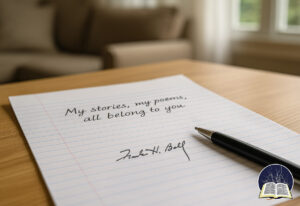 My stories, my poems,
all belong to you